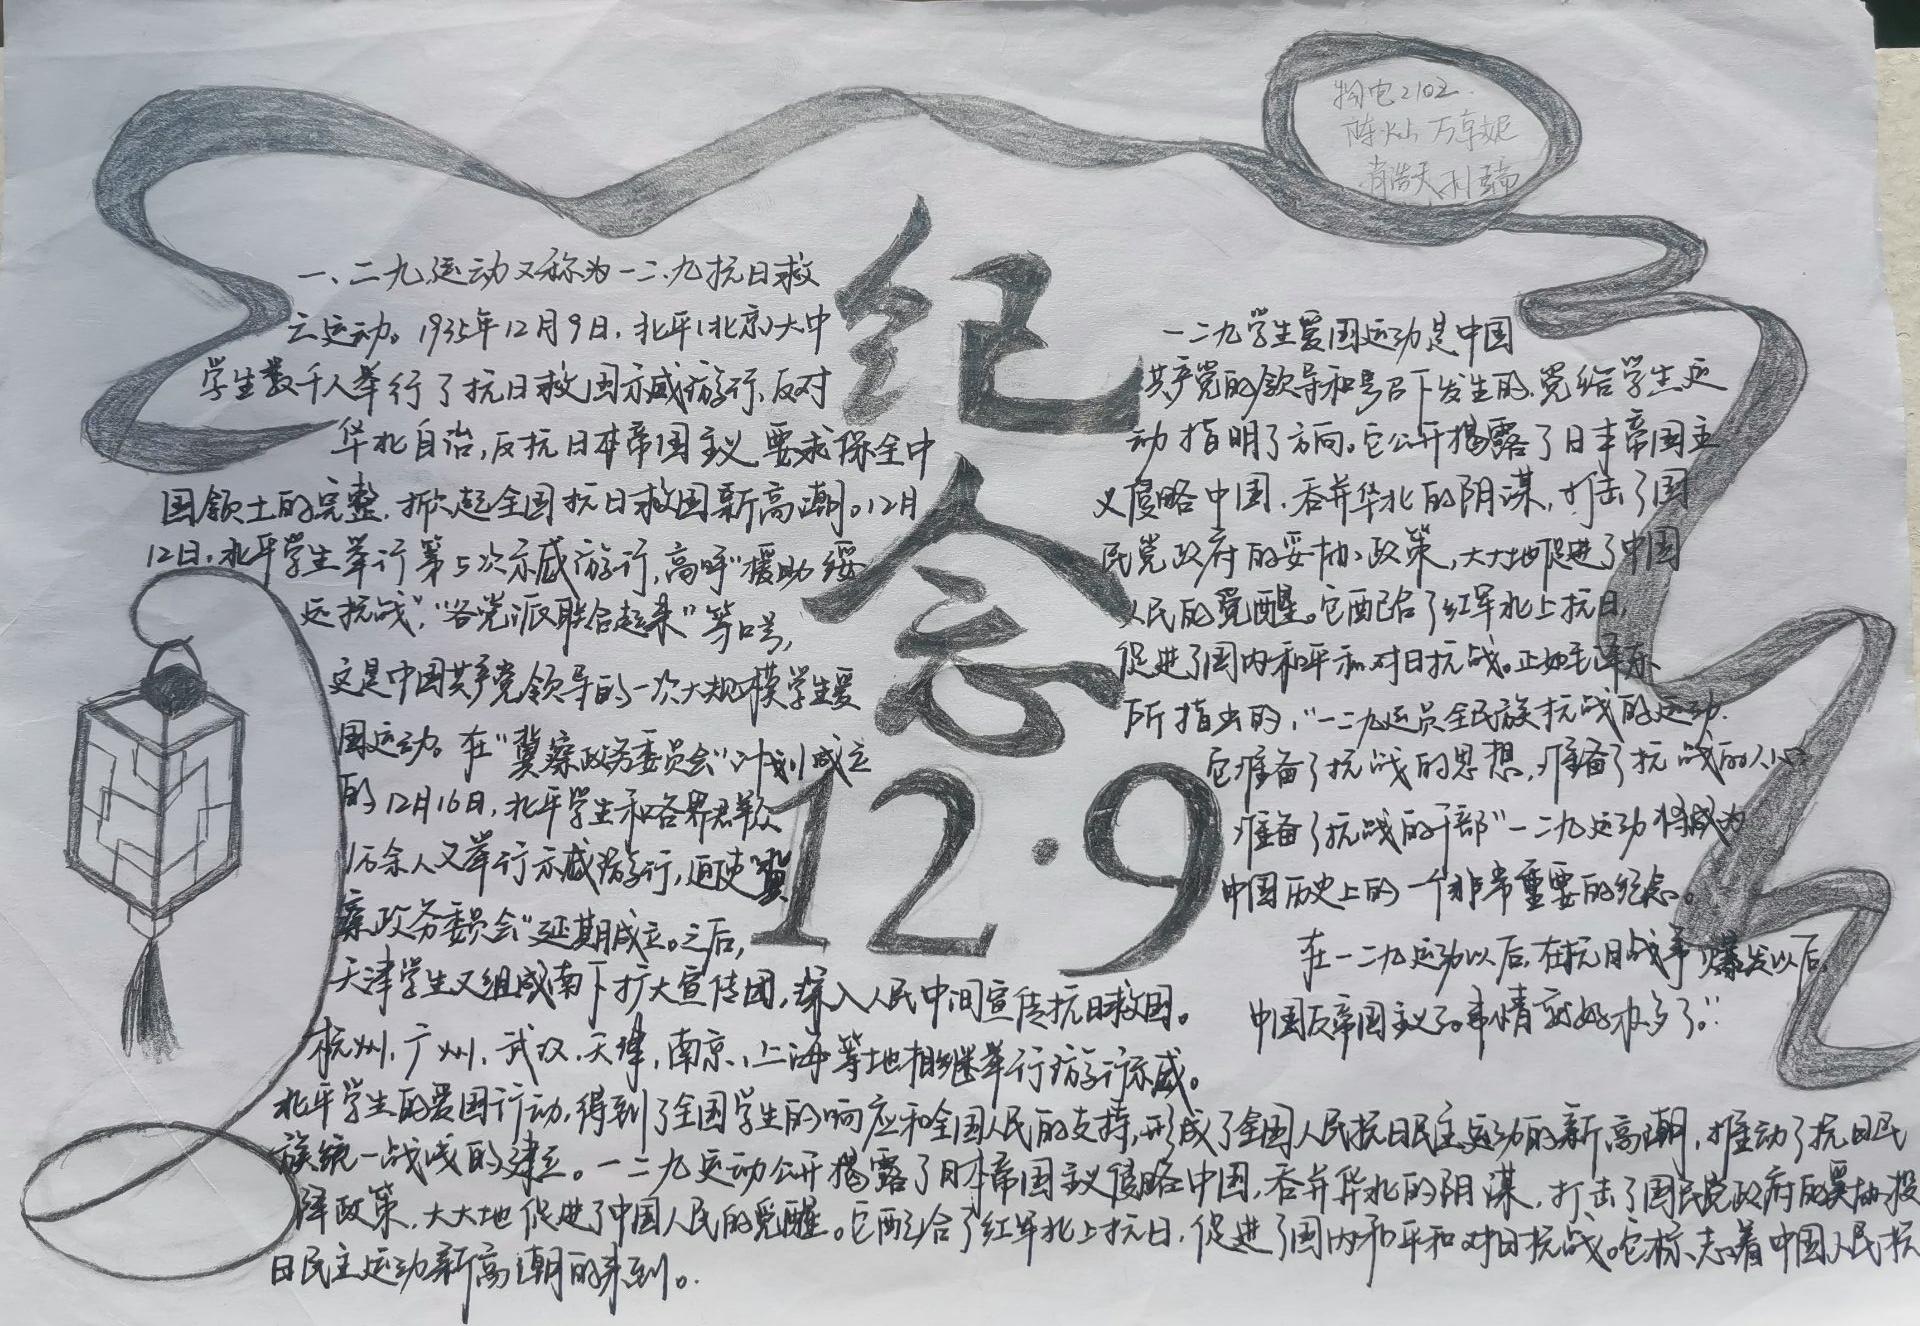 物电2102
陈灿 万卓妮
肖浩天
纪念
12·9
一、二九运动又称为一二·九抗日救
云运动。1935年12月9日,北平(北京)大中
学生数千人举行了抗日救国示威游行,反对
华北自治,反抗日本帝国主义,要求保全中
国领土的完整,掀起全国抗日救国新高潮。12月
12日,北平学生举行第5次示威游行,高呼"援助绥
远抗战","各党派联合起来"等口号,
这是中国共产党领导的一次大规模学生爱
国运动。在"冀察政务委员会"计划成立
的12月16日,北平学生和各界群众
1万余人又举行示威游行,迫使"冀
察政务委员会"延期成立。之后,
天津学生又组成南下扩大宣传团,深入人民中间宣传抗日救国。
杭州,广州,武汉,天津,南京,上海等地相继举行游行示威。
北平学生的爱国行动,得到了全国学生的响应和全国人民的支持,形成了全国人民抗日民主运动的新高潮,推动了抗日民
族统一战线的建立。一二九运动公开揭露了日本帝国主义侵略中国,吞并华北的阴谋,打击了国民党政府的妥协投
降政策,大大地促进了中国人民的觉醒。它配合了红军北上抗日,促进了国内和平和对日抗战。它标志着中国人民抗
日民主运动新高潮的来到。
一二九学生爱国运动是中国
共产党的领导和号召下发生的,党给学生运
动指明了方向。它公开揭露了日本帝国主
义侵略中国,吞并华北的阴谋,打击了国
民党政府的妥协政策,大大地促进了中国
人民的觉醒。它配合了红军北上抗日,
促进了国内和平和对日抗战。正如毛泽东
所指出的,"一二九运员全民族抗战的运动,
它准备了抗战的思想,准备了抗战的人心,
准备了抗战的干部"一二九运动将成为
中国历史上的一个非常重要的纪念。
在一二九运动以后,在抗日战争爆发以后,
中国反帝国主义了。事情就好办多了。"